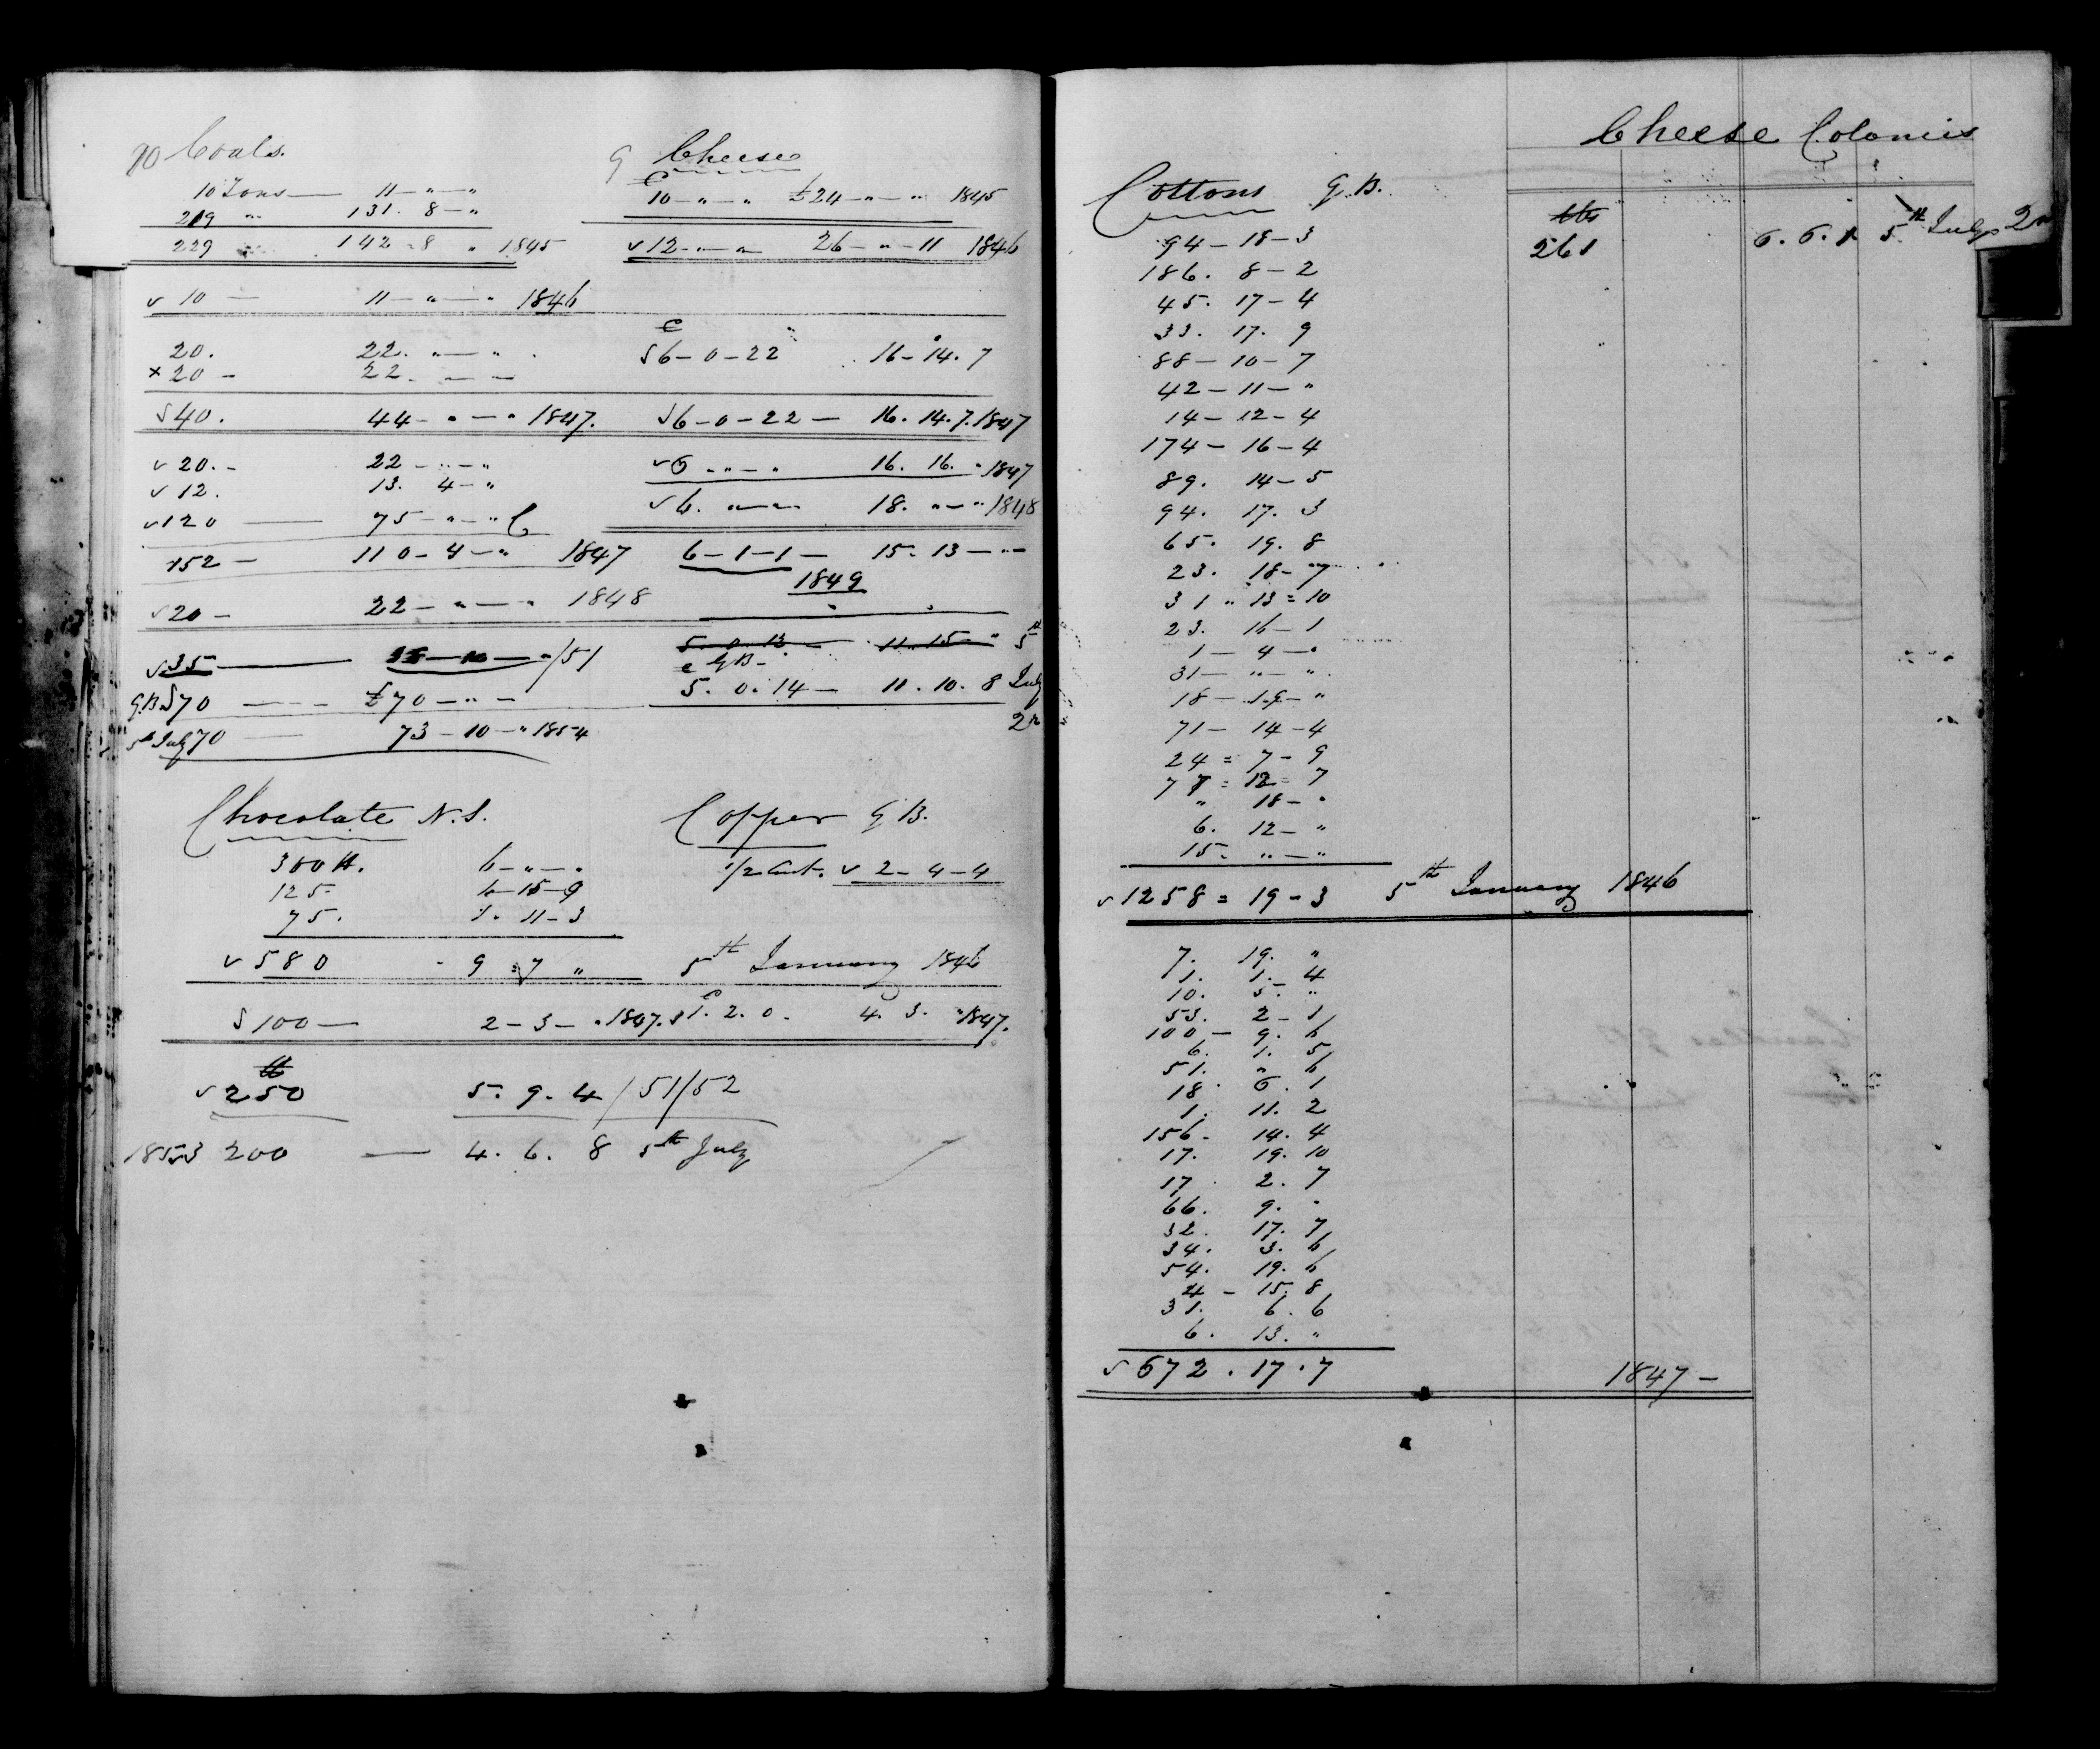 10 Coals.
10 Tons — 11 — " — "
219 " 131. 8 — "
229 142 = 8 " 1845
v 10 — 11 — " — " 1846
20. 22. " — "
x 20 — 22. — —
√ 40. 44 — " — " 1847.
v 20. - 22 — " — "
v 12. 13. 4 — "
v 120 — 75 — " — " C
152 — 110 - 4 — " 1847
v 20 — 22 — " — " 1848
v 35 — — 10 — " /51
G.B. √ 70 — £70 — " —
5th July 70 — 73 — 10 — " 1854
9 Cheese
C
10 — " — " £24 — " — " 1845
v 12 — " — " 26 — " — 11 1846
C
√ 6 - 0 - 22 16 - 14. 7
√ 6 - 0 - 22 — 16. 14. 7. 1847
v 6 " — " 16. 16. " 1847
v 6. " — " 18. " — " 1848
6 - 1 - 1 — 15. 13 — " —
1849
5. 0. 13 — 11. 15 — " 5th
C GB -
5. 0. 14 — 11. 10. 8 July
Chocolate N.S.
380 lb. 6 — " — "
125. 15 - 9
75. 1. 11 - 3
v 580 - 9 = 7 "
√ 100 — 2 - 3 — " 1847.
lb
v 250 5. 9. 4 / 51/52
1853 200 — 4. 6. 8 5th July
Copper G B.
1/2 Cwt. v 2 - 4 - 4
5th January 1846
C
1. 2. 0. 4. 3. " 1847.
Cheese Colonies
lbs
261 6. 6. 1 5th July
Cottons G.B.
94 - 18 - 3
186. 8 - 2
45. 17 - 4
33. 17. 9
88 - 10 - 7
42 - 11 - "
14 - 12 - 4
174 - 16 - 4
89. 14 - 5
94. 17. 3
65. 19. 8
23. 18 - 7
31 " 13 = 10
23. 16 - 1
1 - 4 - "
31 — " — "
18 - 19 - "
71 - 14 - 4
24 = 7 - 9
77 = 12 = 7
" 18 - "
6. 12 - "
15. " — "
v 1258 = 19 - 3 5th January 1846
7. 19. "
1. 1. 4
10. 5. "
53. 2 - 1
100 - 9. 6
6. 1. 5
51. " 6
18. 6. 1
1. 11. 2
156 - 14. 4
17. 19. 10
17. 2. 7
66. 9. "
32. 17. 7
34. 3. 6
54. 19. 6
4 - 15. 8
31. 6. 6
6. 13. "
√ 672. 17. 7 1847 -